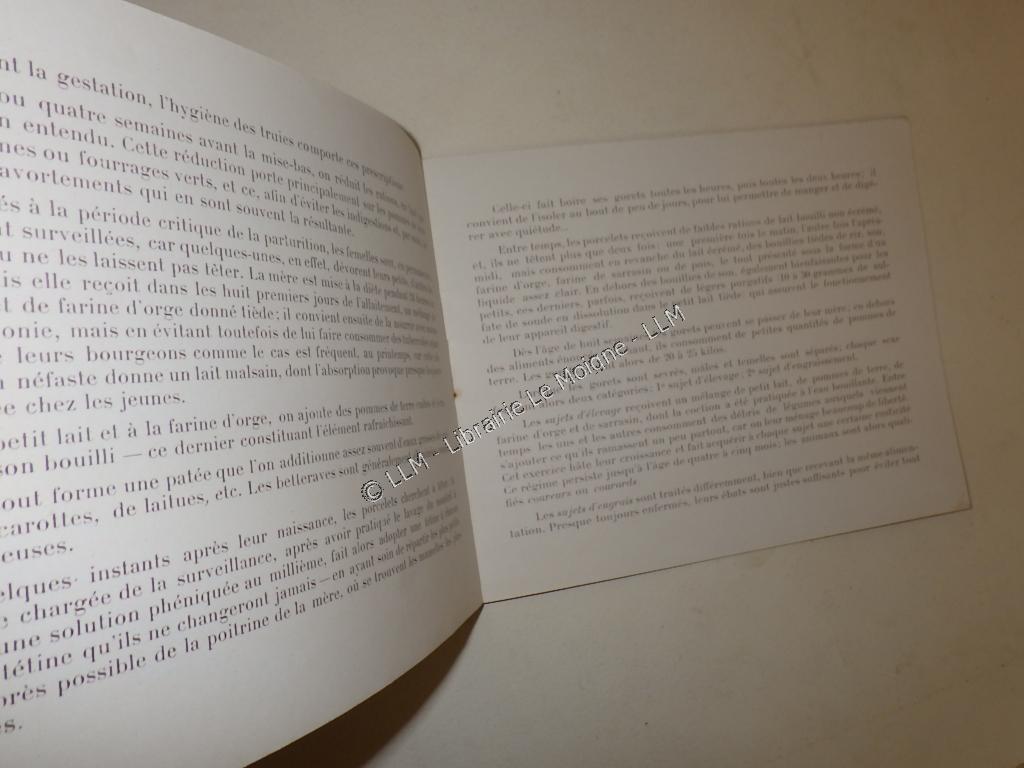 nt la gestation, l'hygiène des truies comporte ces prescriptions
ou quatre semaines avant la mise-bas, on réduit les rations, en
n entendu. Cette réduction porte principalement sur les
nes ou fourrages verts, et ce, afin d'éviter les indigestions et, par suite,
avortements qui en sont souvent la résultante.
és à la période critique de la parturition, les femelles sont, en permanence
t surveillées, car quelques-unes, en effet, dévorent leurs petits,
u ne les laissent pas têter. La mère est mise à la diète pendant
is elle reçoit dans les huit premiers jours de l'allaitement, un mélange
et de farine d'orge donné tiède; il convient ensuite de la nourrir avec
onie, mais en évitant toutefois de lui faire consommer des tubercules
e leurs bourgeons comme le cas est fréquent, au printemps, car cette
n néfaste donne un lait malsain, dont l'absorption provoque presque
ée chez les jeunes.
petit lait et à la farine d'orge, on ajoute des pommes de terre cuites
son bouilli — ce dernier constituant l'élément rafraichissant.
out forme une patée que l'on additionne assez souvent d'eaux grasses
carottes, de laitues, etc. Les betteraves sont généralement
euses.
elques instants après leur naissance, les porcelets cherchent à têter, la
e chargée de la surveillance, après avoir pratiqué le lavage du
une solution phéniquée au millième, fait alors adopter une tétine à chacun
tétine qu'ils ne changeront jamais — en ayant soin de répartir les plus petits
près possible de la poitrine de la mère, où se trouvent les mamelles les plus
es.
Celle-ci fait boire ses gorets toutes les heures, puis toutes les deux heures; il
convient de l'isoler au bout de peu de jours, pour lui permettre de manger et de digé-
rer avec quiétude...
Entre temps, les porcelets reçoivent de faibles rations de lait bouilli non écrémé,
et, ils ne têtent plus que deux fois: une première fois le matin, l'autre fois l'après-
midi, mais consomment, en revanche du lait écrémé, des bouillies tièdes de riz, son,
farine d'orge, farine de sarrasin ou de pois, le tout présenté sous la forme d'un
liquide assez clair. En dehors des boissons de son, également bienfaisantes pour les
petits, ces derniers, parfois, reçoivent de légers purgatifs: 10 à 30 grammes de sul-
fate de soude en dissolution dans le petit lait tiède: qui assurent le fonctionnement
de leur appareil digestif.
Dès l'âge de huit semaines les gorets peuvent se passer de leur mère; en dehors
des aliments énoncés ils consomment de petites quantités de pommes de
terre. Les alors de 20 à 25 kilos.
gorets sont sevrés, mâles et femelles sont séparés; chaque sexe
alors deux catégories: 1° sujet d'élevage; 2° sujet d'engraissement.
Les sujets d'élevage reçoivent un mélange de petit lait, de pommes de terre, de
farine d'orge et de sarrasin, dont la coction a été pratiquée à l'eau bouillante. Entre
temps les uns et les autres consomment des débris de légumes auxquels viennent
s'ajouter ce qu'ils ramassent un peu partout, car on leur ménage beaucoup de liberté.
Cet exercice hâte leur croissance et fait acquérir à chaque sujet une certaine rusticité
Ce régime persiste jusqu'à l'âge de quatre à cinq mois; les animaux sont alors quali-
fiés coureurs ou courards
Les sujets d'engrais sont traités différemment, bien que recevant la même alimen-
tation. Presque toujours enfermés, leurs ébats sont justes suffisants pour éviter tout
© LLM - Librairie Le Moigne - LLM